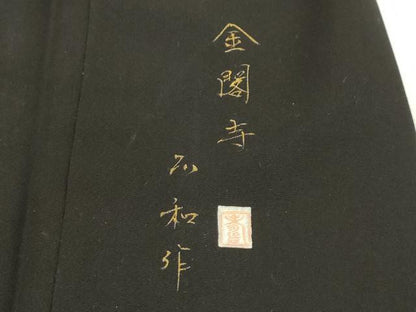 金閣寺
和作